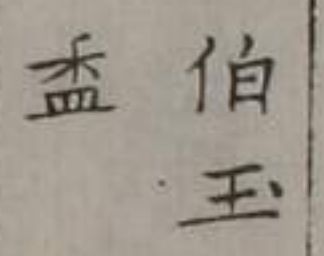 伯玉
盉